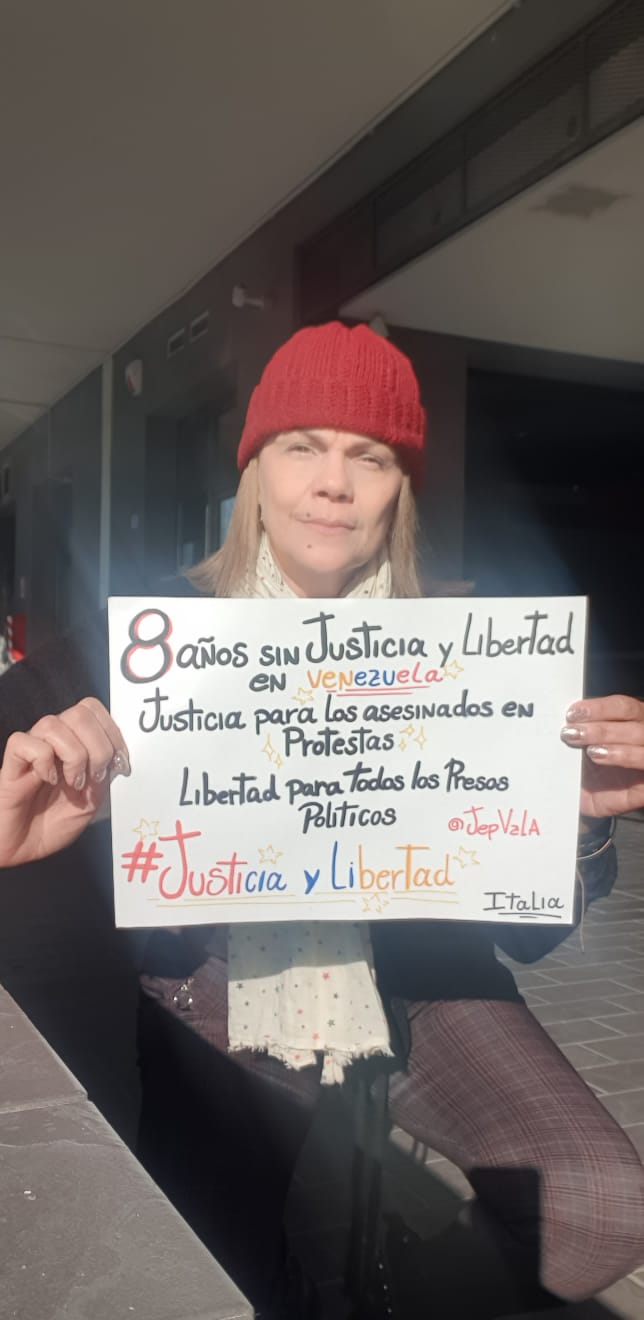 8 años sin Justicia y Libertad
en Venezuela
Justicia para los asesinados en
Protestas
Libertad para Todos los Presos
Politicos
@JepVzlA
#Justicia y Libertad
Italia